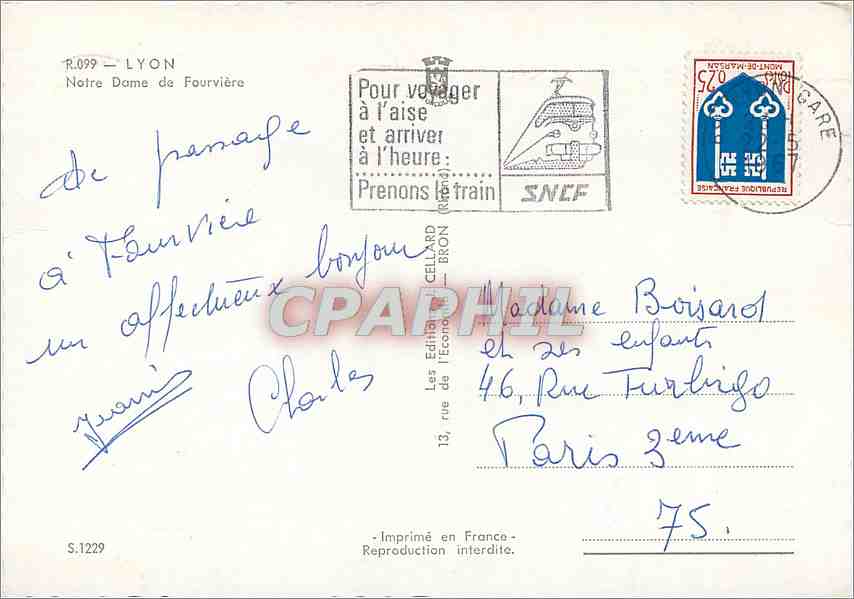 R.099 — LYON
Notre Dame de Fourvière
Pour voyager
à l'aise
et arriver
à l'heure :
Prenons le train
SNCF
GARE
1967
0,25
MONT-DE-MARSAN
REPUBLIQUE FRANÇAISE
de passage
à Fourvière
un affectueux bonjour
Charles
Les Editions CELLARD
13, rue de l'Economie — BRON (Rhône)
CPAPHIL
Madame Boisard
et ses enfants
46, Rue Turbigo
Paris 3eme
75.
S.1229
- Imprimé en France -
Reproduction interdite.